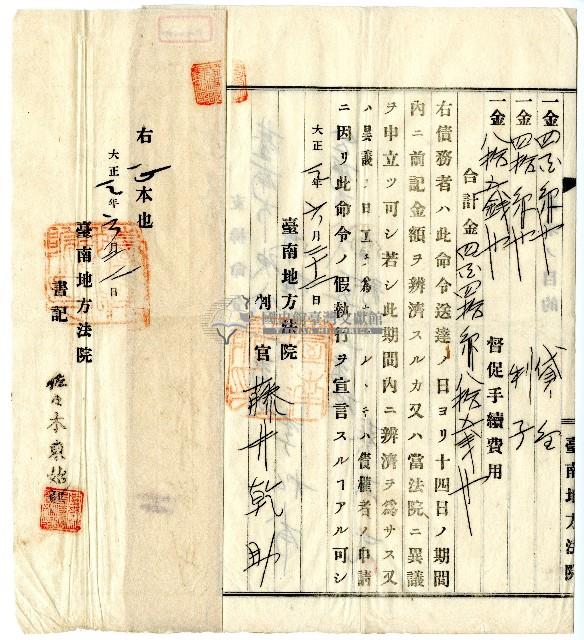 一金四百円也 貸金
一金四拾円也 利子
一金八拾五銭也 督促手續費用
合計金四百四拾円八拾五銭也
右債務者ハ此命令送達ノ日ヨリ十四日ノ期間
内ニ前記金額ヲ辨濟スルカ又ハ當法院ニ異議
ヲ申立ツ可シ若シ此期間内ニ辨濟ヲ爲サス又
ハ異議ノ申立ヲ爲サ ルトキハ債權者ノ申請
ニ因リ此命令ノ假執行ヲ宣言スルヿアル可シ
大正 年六月 日
臺南地方法院
判官 藤井乾助
臺南地方法院
右 本也
大正 年六月 日
臺南地方法院
書記 佐々木
國史館臺灣文獻館